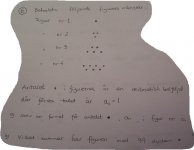 ⑥ Betrakta följande figurers mönster:
Figur nr 1
" nr 2
" nr 3
" nr 4
Antalet • i figurerna är en aritmetisk talföljd
där första talet är a₁=1
en formel för antalet • i figur nr
Vilket nummer har figuren med 99 stycken •?